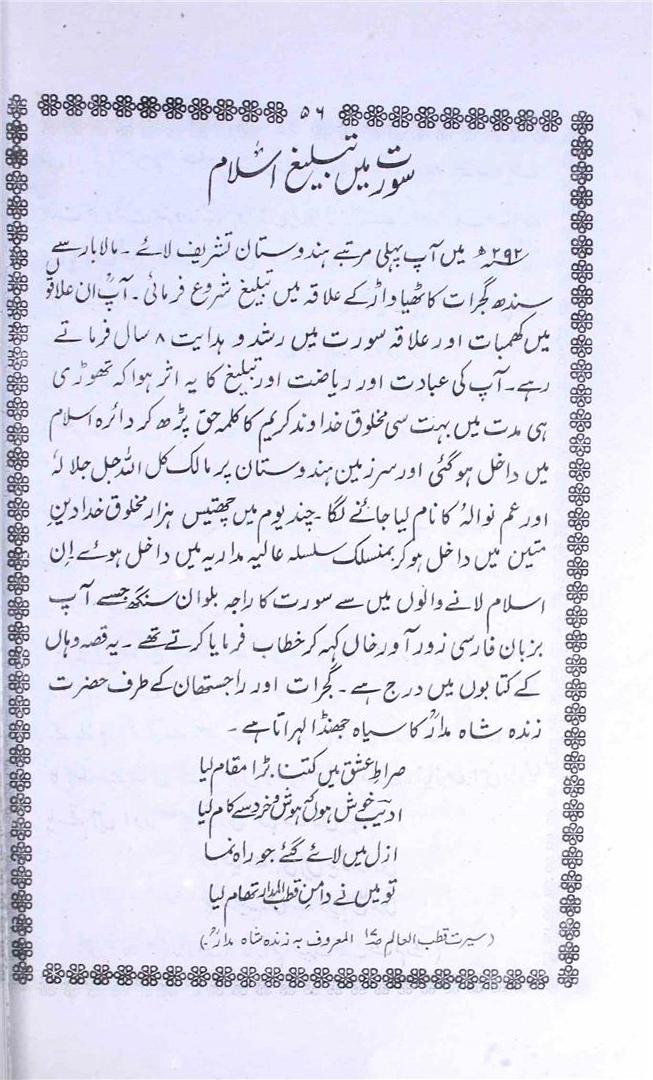 ۵۶
سورت میں تبلیغ اسلام
۲۹۲ھ میں آپ پہلی مرتبے ہندوستان تشریف لائے۔ مالابار سے
سندھ گجرات کاٹھیاواڑ کے علاقہ میں تبلیغ شروع فرمائی۔ آپؒ ان علاقوں
میں کھمبات اور علاقہ سورت میں رشد و ہدایت ۸ سال فرماتے
رہے۔ آپ کی عبادت اور ریاضت اور تبلیغ کا یہ اثر ہوا کہ تھوڑی
ہی مدت میں بہت سی مخلوق خداوند کریم کا کلمہ حق پڑھ کر دائرہ اسلام
میں داخل ہو گئی اور سرزمین ہندوستان پر مالک کل اللہ جل جلالہٗ
اور عم نوالہٗ کا نام لیا جانے لگا۔ چند یوم میں چھتیس ہزار مخلوق خدا دینِ
متین میں داخل ہو کر بمنسلک سلسلہ عالیہ مداریہ میں داخل ہوئے اِن
اسلام لانے والوں میں سے سورت کا راجہ بلوان سنگھ جسے آپ
بزبان فارسی زور آور خاں کہہ کر خطاب فرمایا کرتے تھے۔ یہ قصہ وہاں
کے کتابوں میں درج ہے۔ گجرات اور راجستھان کے طرف حضرت
زندہ شاہ مدارؒ کا سیاہ جھنڈا لہراتا ہے۔
صراطِ عشق میں کتنا بڑا مقام لیا
ادیبؔ خوش ہوں کہ ہوش و خرد سے کام لیا
ازل میں لائے گئے جو راہ نما
تو میں نے دامنِ قطب المدار تھام لیا
(سیرت قطب العالم المعروف بہ زندہ شاہ مدارؒ)